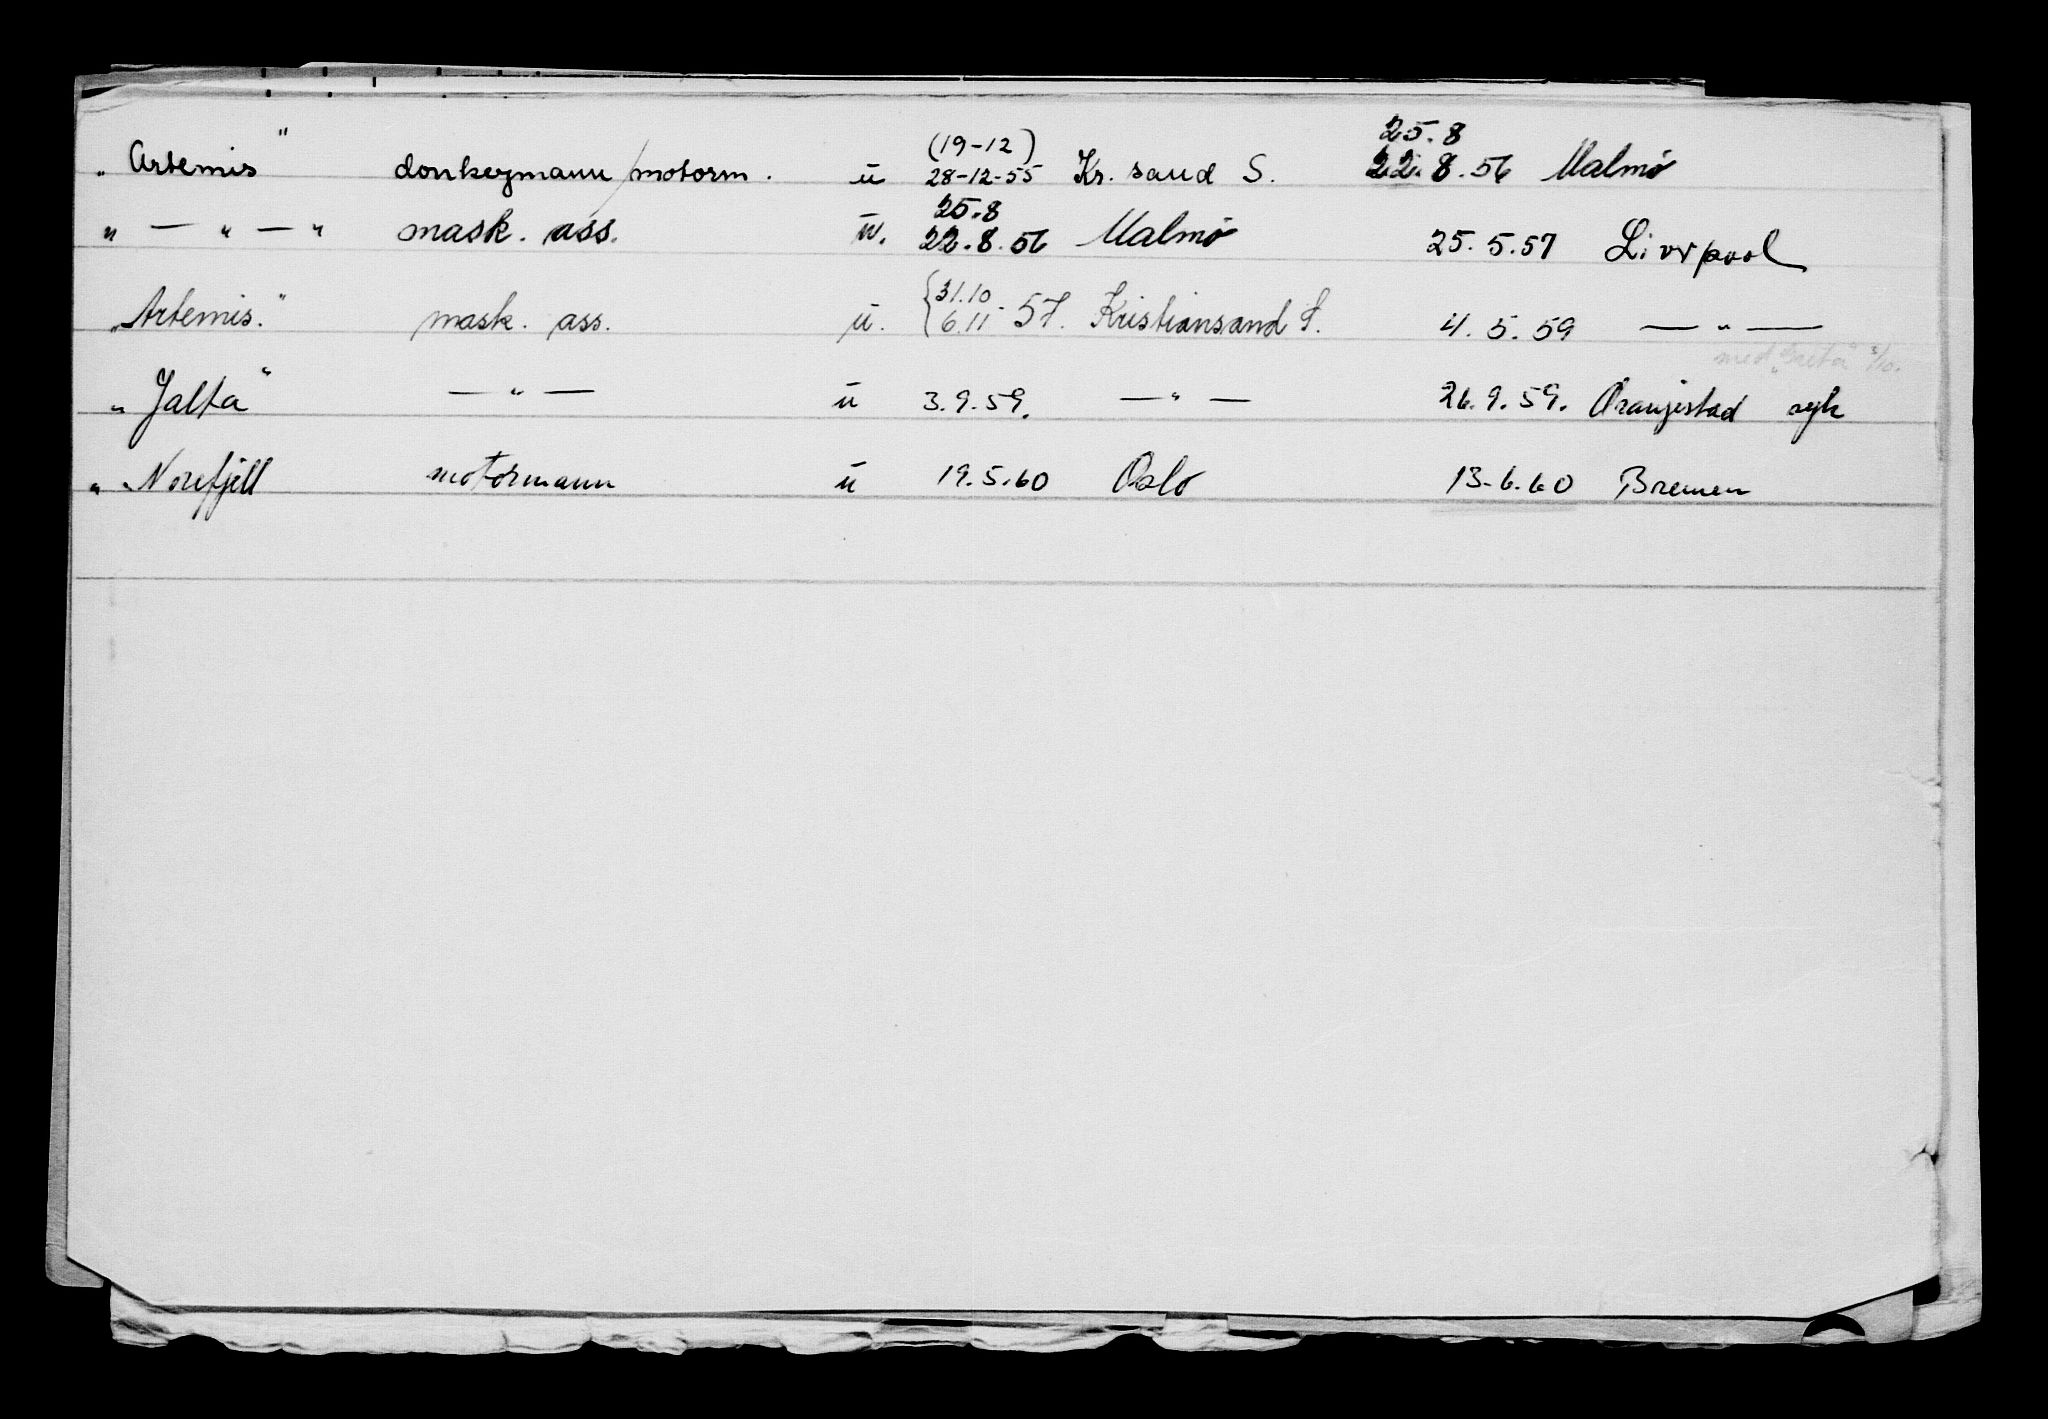 "Artemis" donkeymann/motorm. u (19-12) 28-12-55 Kr. sand S. 25.8 22.8.56 Malmø
" — " — " mask. ass. u. 25.8 22.8.56 Malmø 25.5.57 Livrpool
"Artemis." mask. ass. u. {31.10 6.11 57. Kristiansand S. 4.5.59 — " —
med
"Jalta" — " — u 3.9.59. — " — 26.9.59. Oranjestad syk
" "Norefjell motormann u 19.5.60 Oslo 13-6.60 Bremen